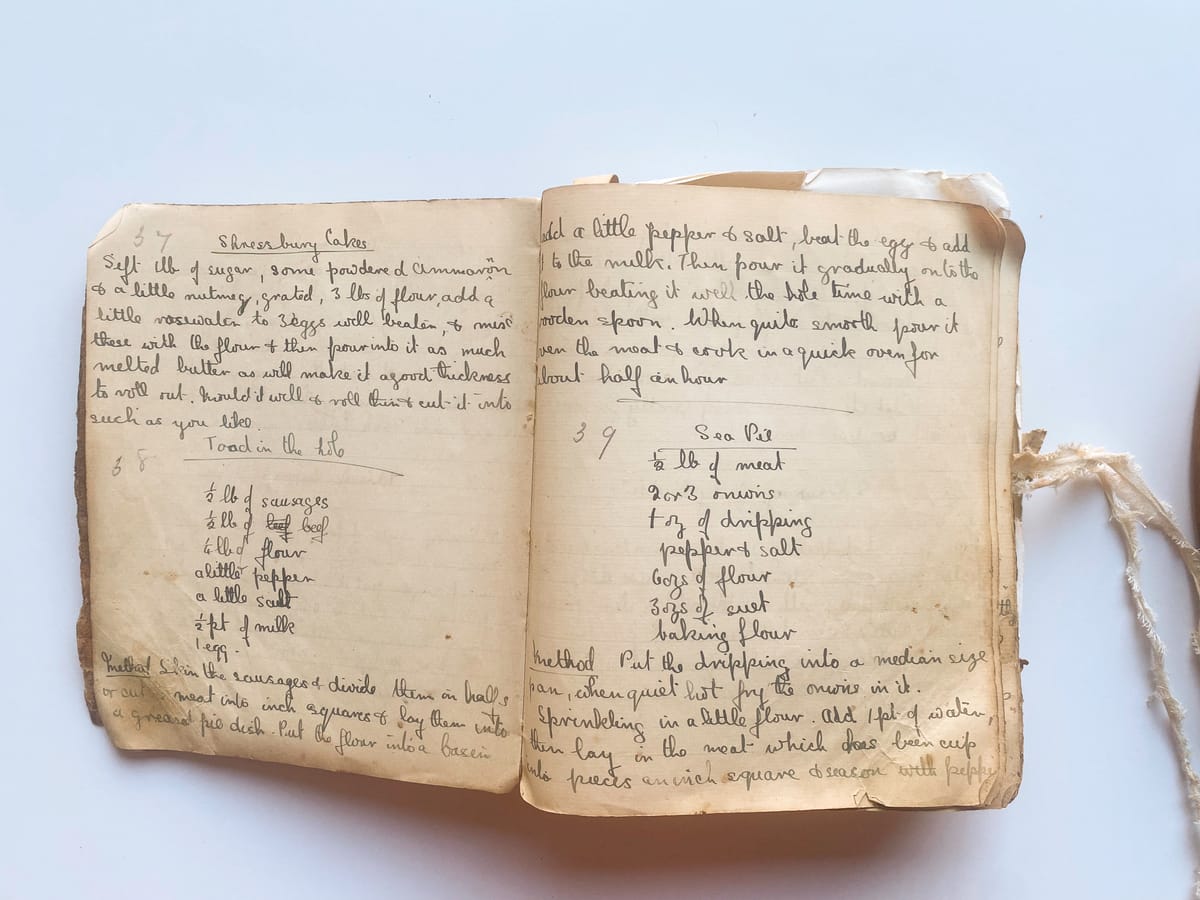 37
Shressbury Cakes
Sift 1lb of sugar, some powdered Cinnamon
& a little nutmeg, grated, 3 lbs of flour, add a
little rosewater to 3 eggs well beaten, & mix
these with the flour & then pour into it as much
melted butter as will make it a good thickness
to roll out. Mould it well & roll thin & cut it into
such as you like.
38
Toad in the hole
½ lb of sausages
½ lb of beef
¼ lb of flour
a little pepper
a little salt
½ pt of milk
1 egg.
Method Skin the sausages & divide them in halfs
or cut meat into inch squares & lay them into
a greased pie dish. Put the flour into a basin
add a little pepper & salt, beat the egg & add
to the milk. Then pour it gradually onto the
flour beating it well the hole time with a
wooden spoon. When quite smooth pour it
over the meat & cook in a quick oven for
about half an hour
39
Sea Pie
½ lb of meat
2 or 3 onions
1 oz of dripping
pepper & salt
6ozs of flour
3ozs of suet
baking flour
Method Put the dripping into a median size
pan, when quiet hot fry the onions in it.
Sprinkling in a little flour. Add 1 pt of water,
then lay in the meat which does been cup
into pieces an inch square & season with peppe